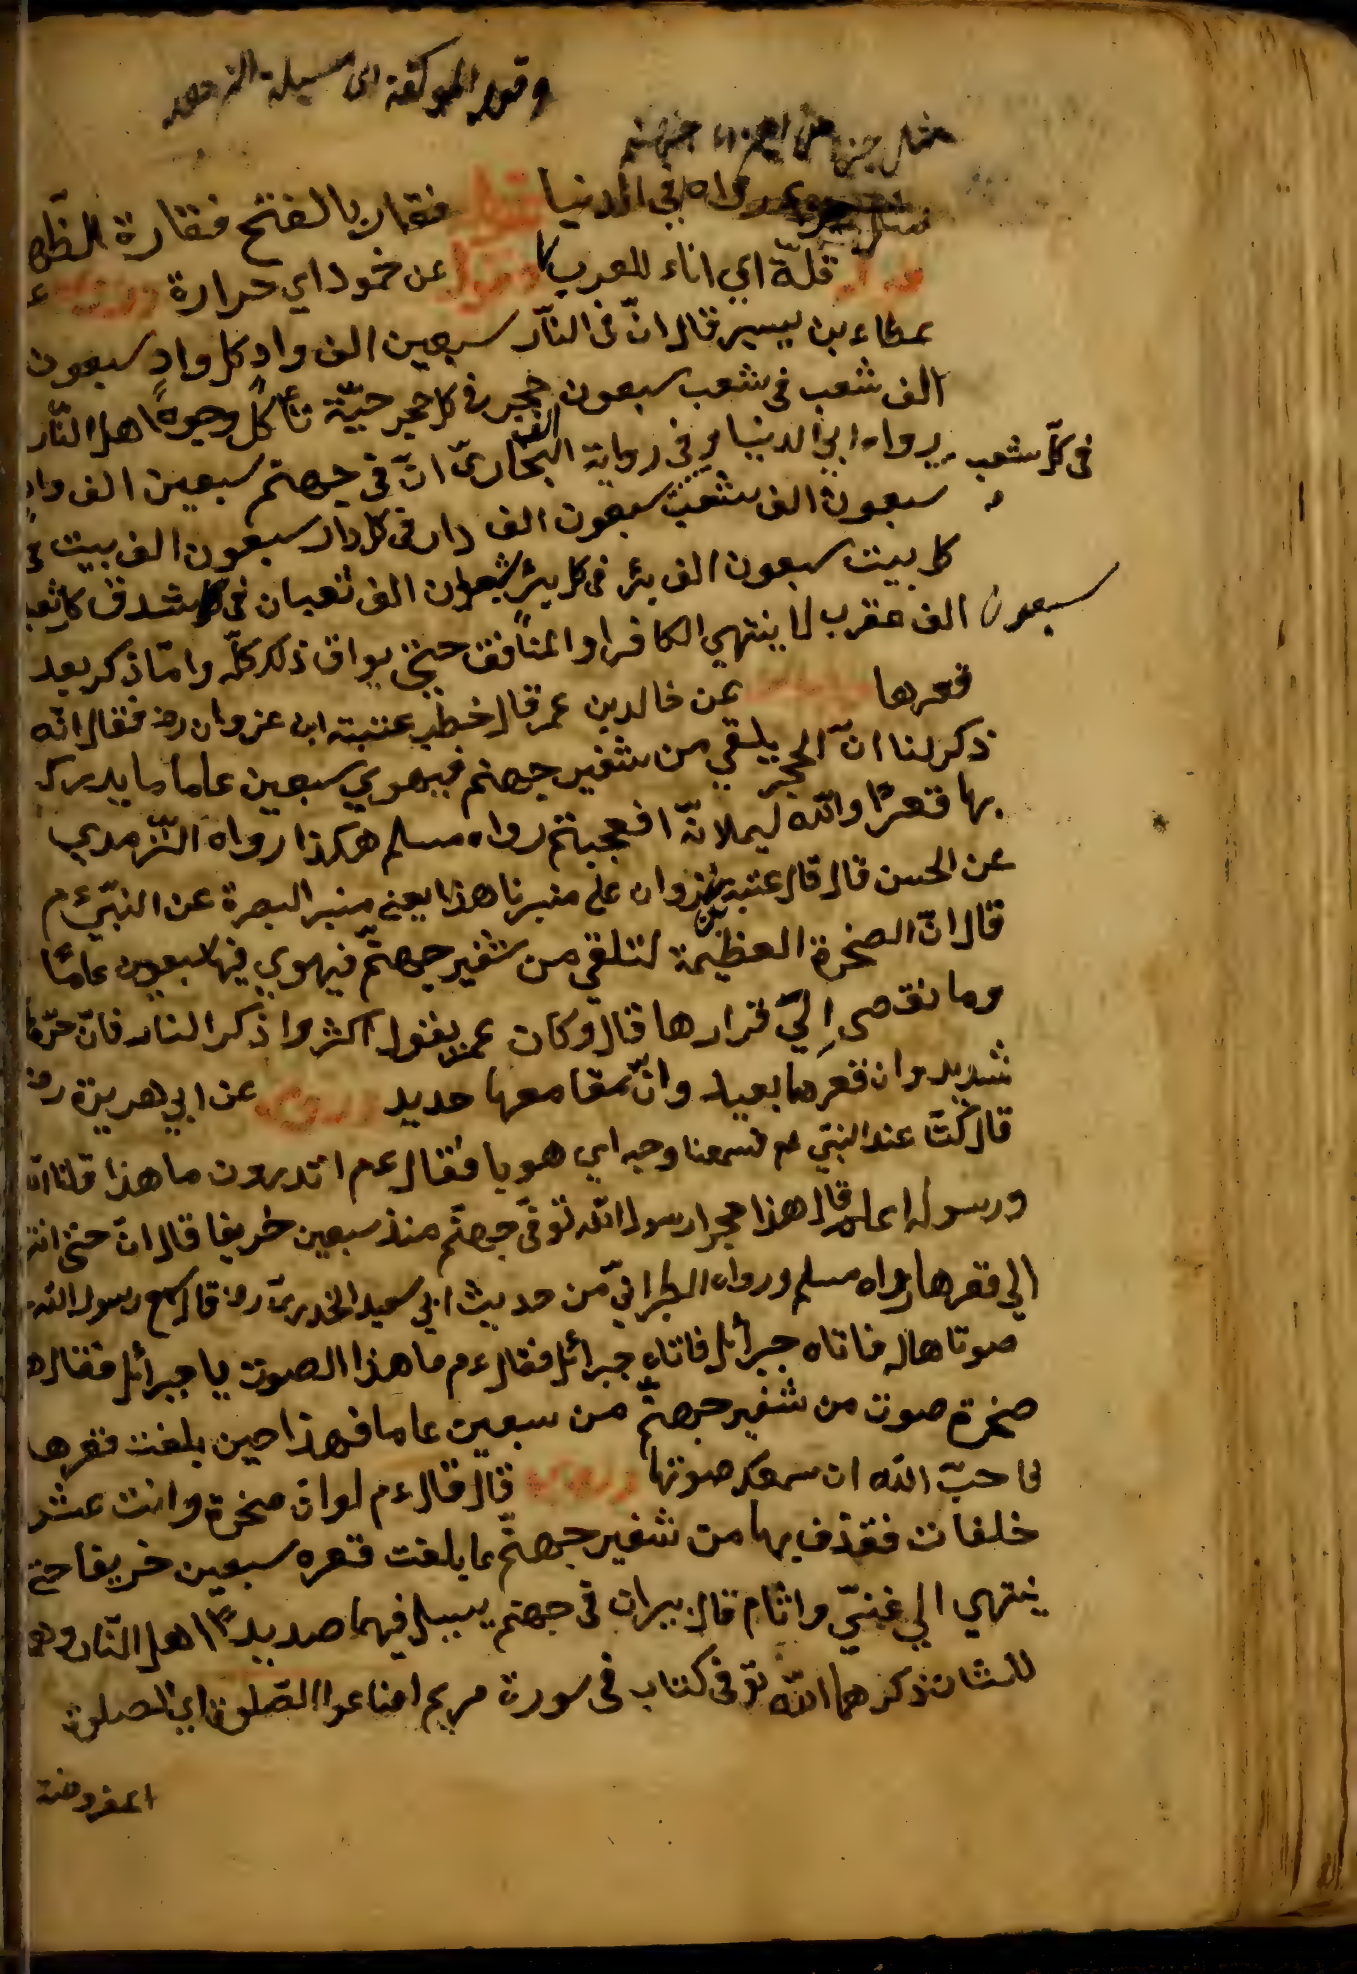 وقوله الموكفة اى مسيلة
مثل جهنم
رواه في الدنيا قوله فقار بالفتح فقارة الظهر
قوله قلة اي اناء للعرب وقوله عن خمود اي حرارة وروى
عطاء بن يسير قال انّ فى النّار سبعين الف واد كل واد سبعون
الف شعب فى شعب سبعون الف حجر فى كل حجر حيّة تأكل وجوه اهل النّار
فى كلّ شعب
رواه ابي الدنيا وفى رواية البخارىّ انّ فى جهنم سبعين الف واد
سبعون الف شعب سبعون الف دار فى كل دار سبعون الف بيت فى
كل بيت سبعون الف بئر فى كل بئر سبعون الف ثعبان فى شدق كل ثعبان
سبعون الف عقرب لا ينتهي الكافر او المنافق حتى يواق ذلك كلّه وامّا ذكر بعد
قعرها عن خالد بن عمر قال خطب عتبة ابن غزوان رض فقال انّه
ذكر لنا انّ الحجر يلقي من شفير جهنم فيهوي سبعين عاما ما يدرك
بها قعرًا والله ليملانّه افعجبتم رواه مسلم هكذا رواه التّرمذي
عن الحسن قال قال عتبة بن غزوان على منبرنا هذا يعنى منبر البصرة عن النبيّ ءم
قال انّ الصخرة العظيمة لتلقي من شفير جهنّم فيهوي فيها سبعون عامًا
وما نقصى اِليّ قرارها قال وكان عمر يقول اكثروا ذكر النار فانّ حرّها
شديد وان قعرها بعيد وانّ مقامعها حديد وروى عن ابي هريرة رض
قال كنّا عند النبيّ ءم فسمعنا وجبه اي هويا فقال ءم اتدرون ما هذا قلنا الله
ورسوله اعلم قال هذا حجر ارسول الله تو فى جهنّم منذ سبعين خريفا قال انّ حتى انتهى
الي قعرها رواه مسلم ورواه الطبرانيّ من حديث ابي سعيد الخدرىّ رض قال سمع رسول الله
صوتا هاله فاتاه جبرائل فاتاه جبرائل فقال ءم ما هذا الصوت يا جبرائل فقال هذه
صخرة صوت من شفير جهنّم من سبعين عاما فهذا حين بلغت قعرها
فاحبّ الله ان سمعك صوتها وروى قال قال ءم لو ان صخرة وانت عشر
خلفات فقذف بها من شفير جهنّم ما بلغت قعره سبعين خريفا حتى
ينتهي الي غيّ واثام قال بيران فى جهنم يسيل فيهما صديد اهل النّار وهو
للشان ذكرهما الله تو فى كتاب فى سورة مريم اضاعوا الصّلوة اي الصلوة
المفروضة